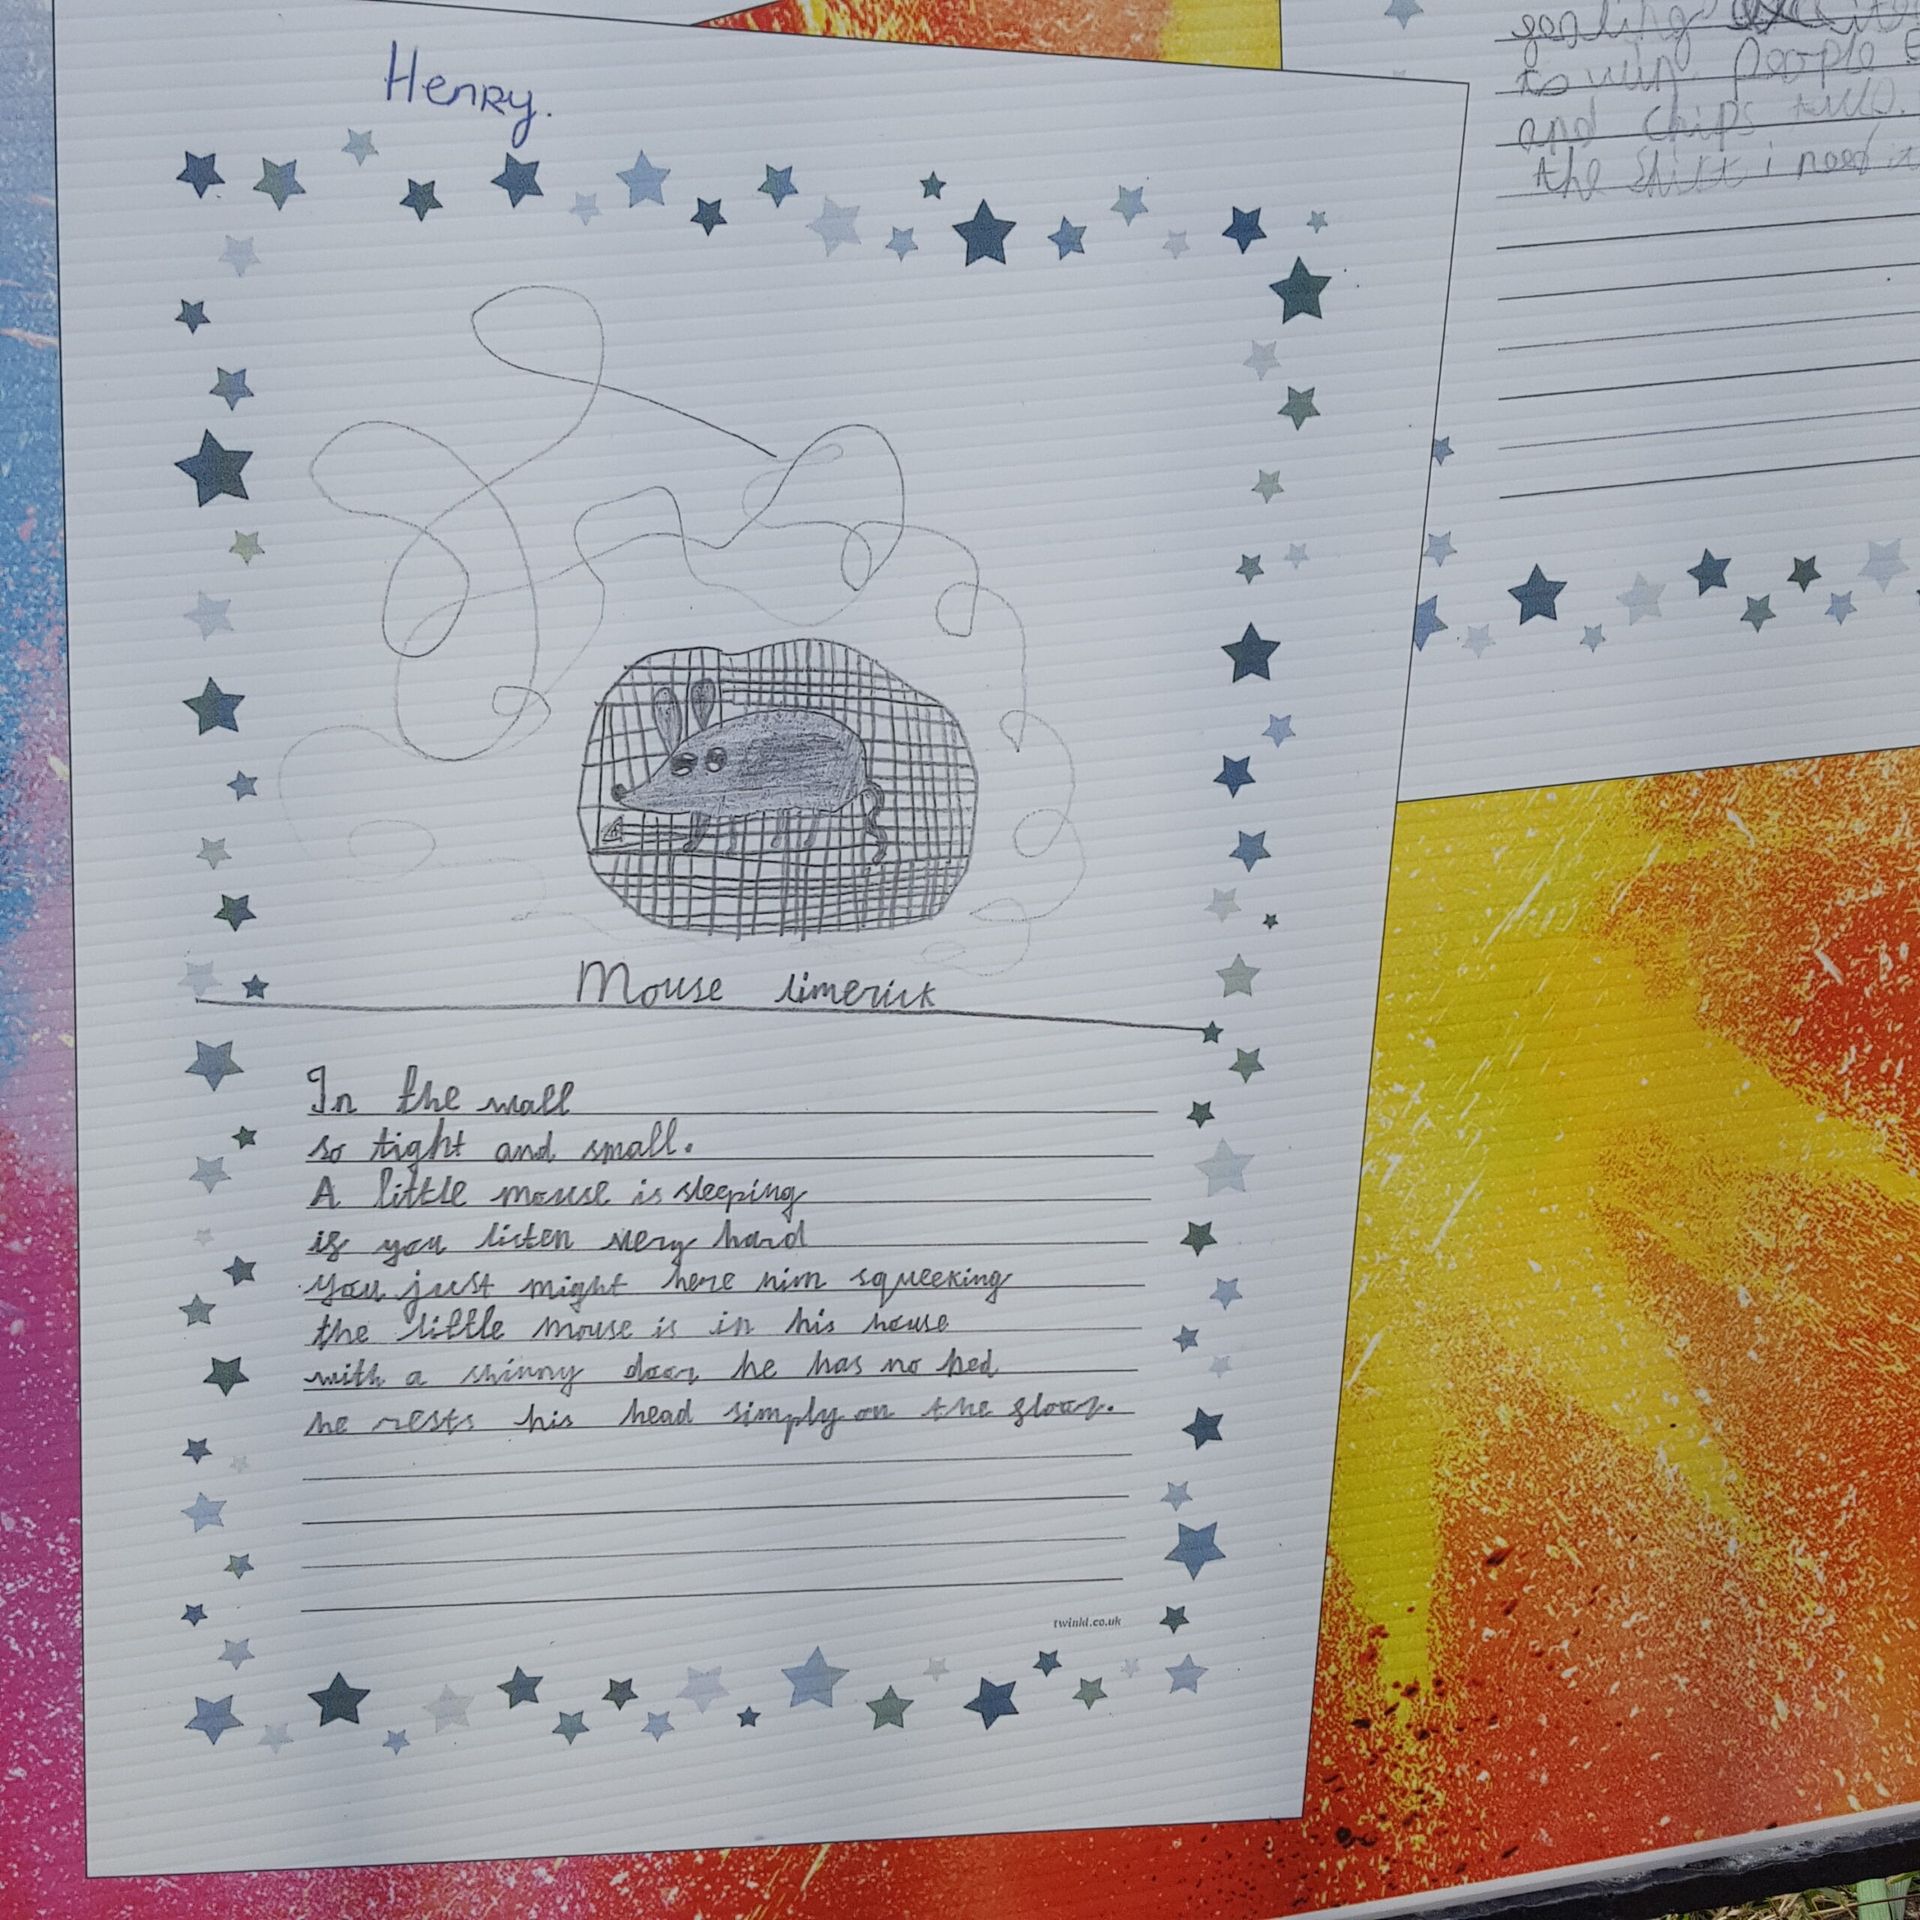 Henry.
Mouse limerick
In the wall
so tight and small.
A little mouse is sleeping
if you listen very hard
you just might here him squeeking
the little mouse is in his house
with a shinny door he has no bed
he rests his head simply on the floor.
twinkl.co.uk
to win people
and chips
the shirt i need